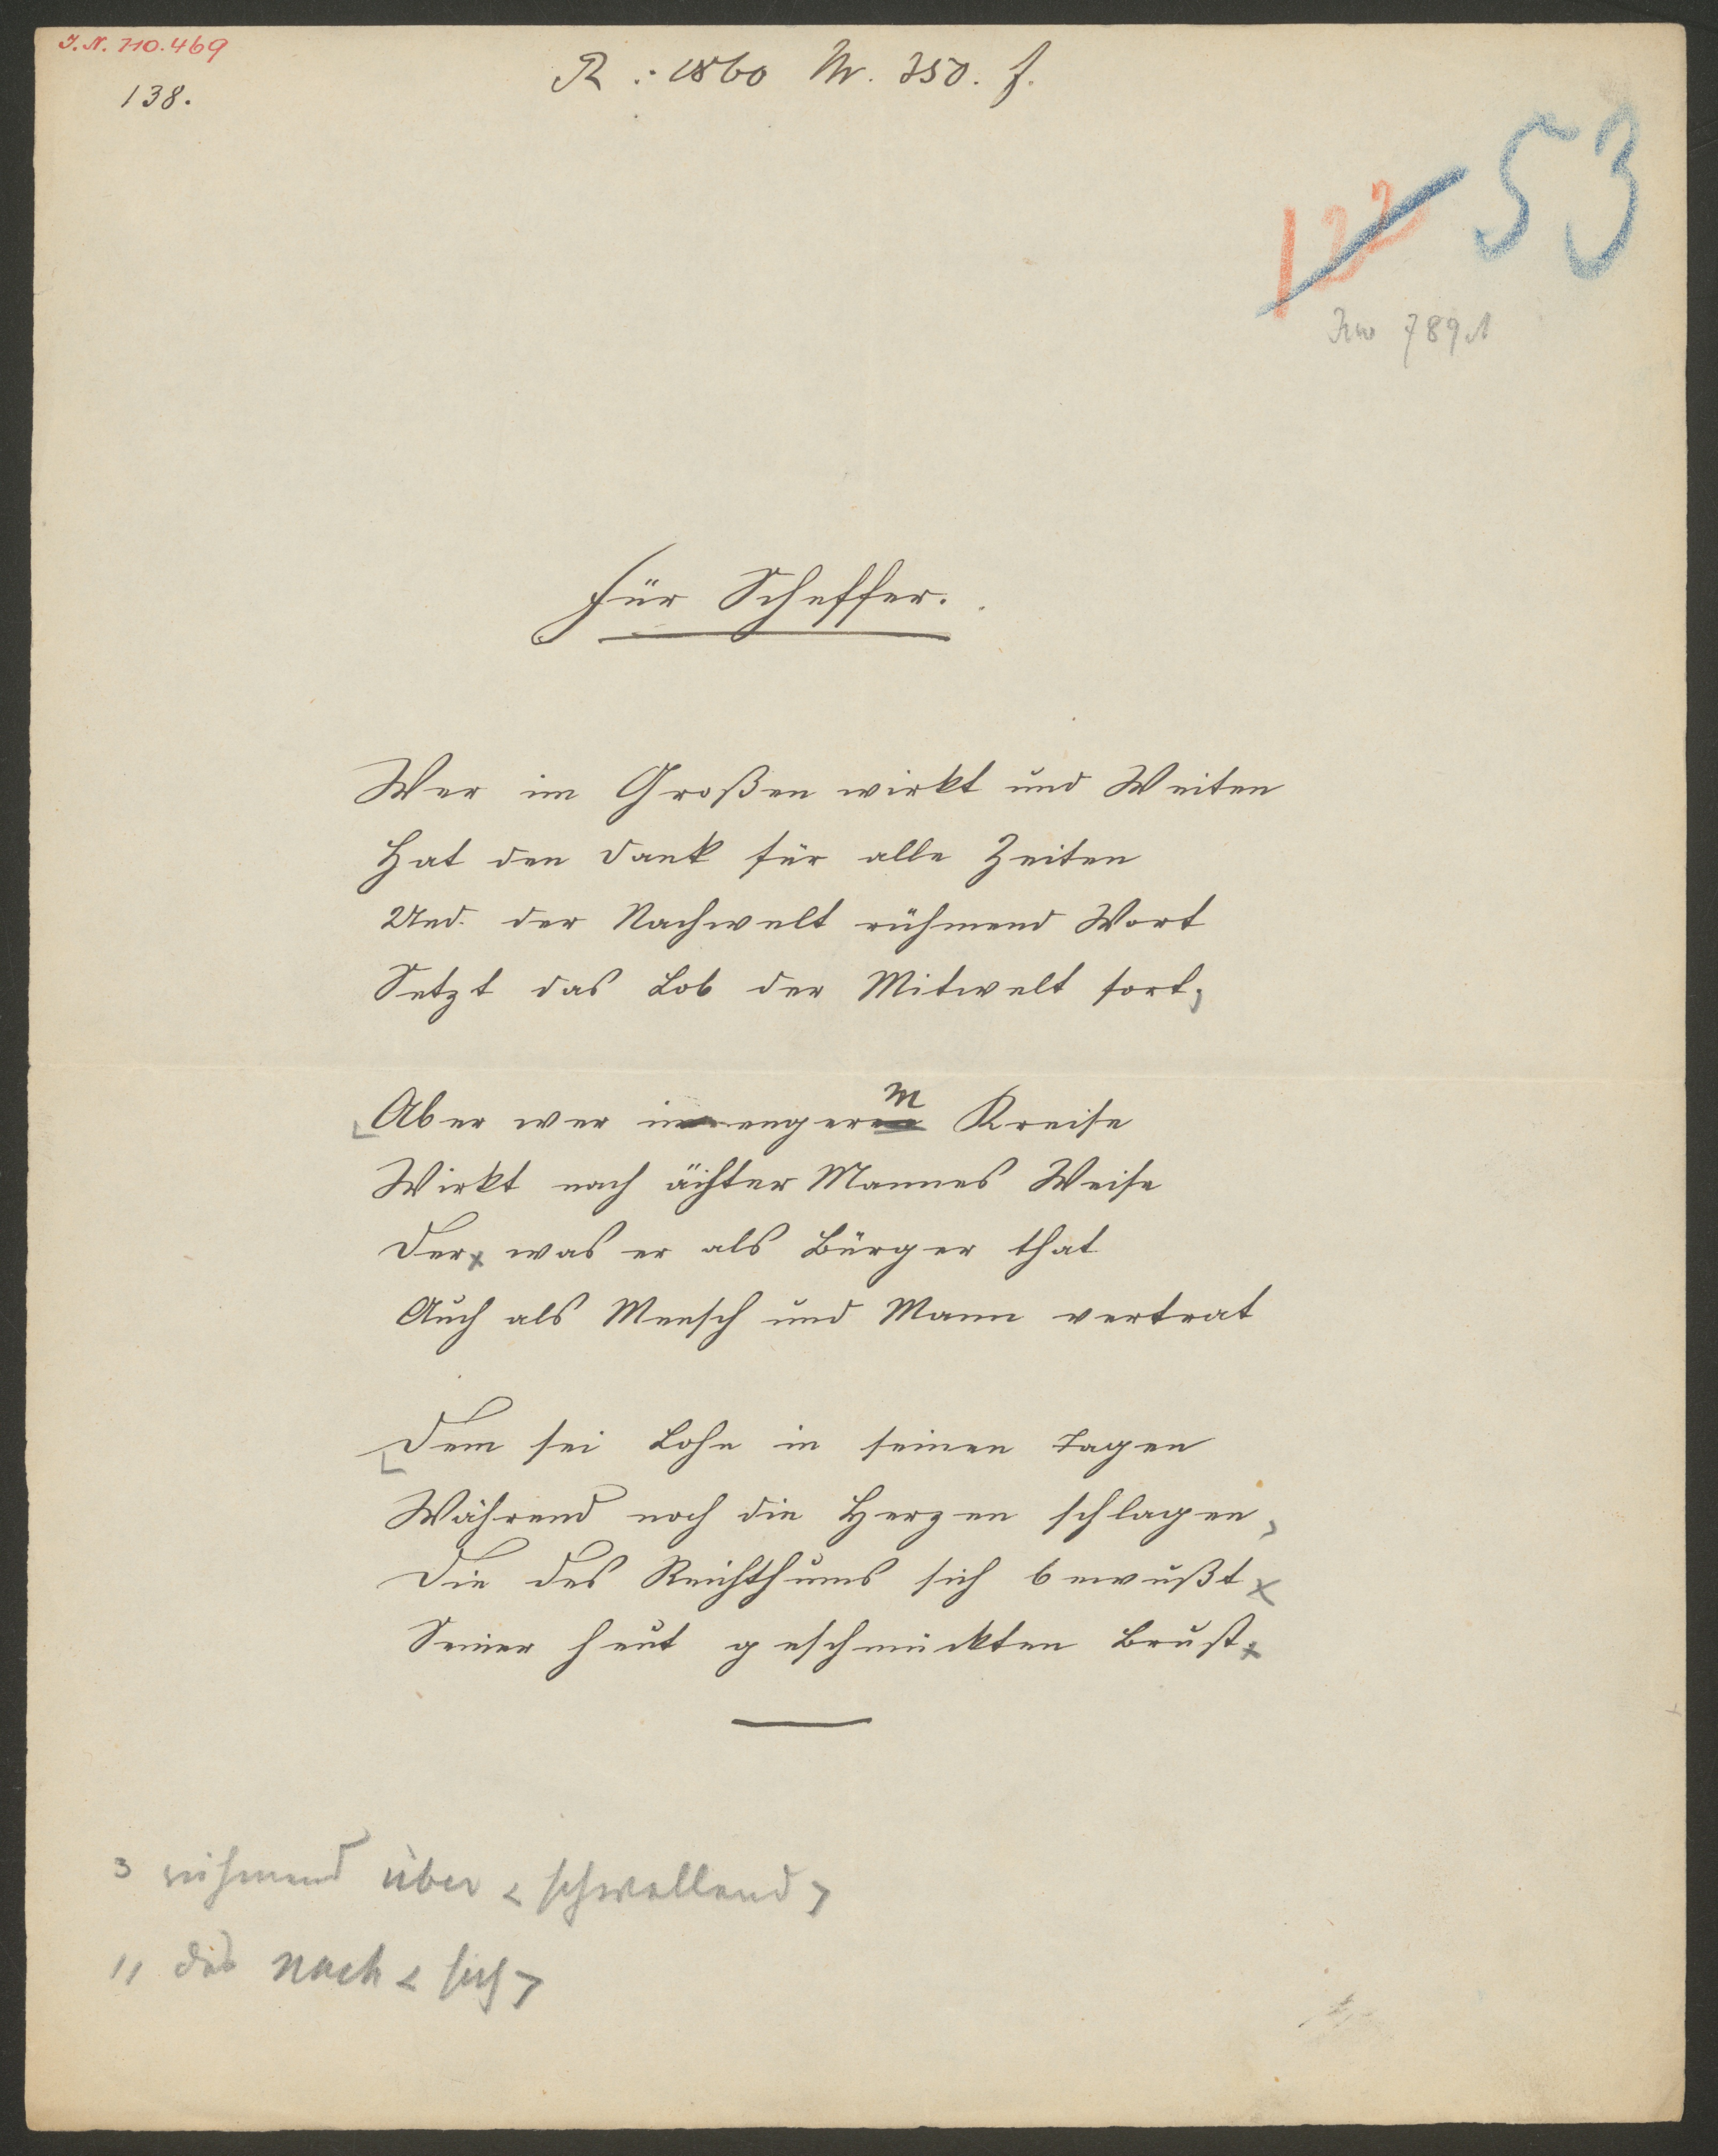 I.N. 710.469
138.
R : 1860 Nr. 350. f.
122 53
7891
Für Scheffer.
Wer im Großen wirkt und Weiten
Hat den Dank für alle Zeiten
Und der Nachwelt rühmend Wort
Setzt das Lob der Mitwelt fort;
Aber wer in engerem Kreise
Wirkt nach ächter Mannes Weise
Der x was er als Bürger that
Auch als Mensch und Mann vertrat
Dem sei Lohn in seinen Tagen
Während noch die Herzen schlagen,
Die des Reichthums sich bewußt x
Seiner heut geschmückten Brust. x
3 rühmend über < schwellend >
11 des nach < sich >